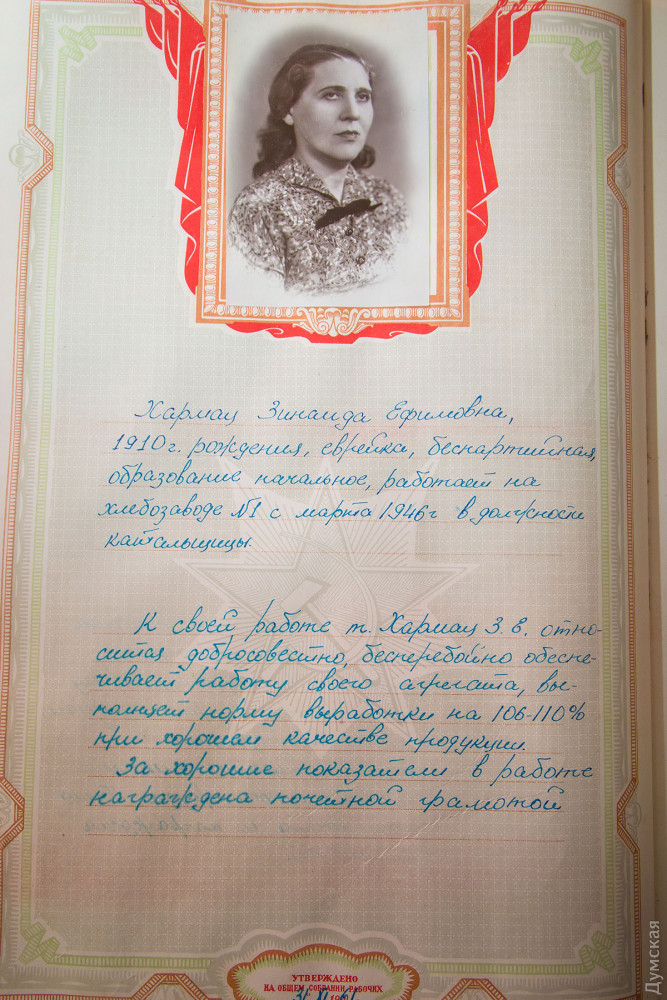 Хармац Зинаида Ефимовна,
1910 г. рождения, еврейка, беспартийная,
образование начальное, работает на
хлебозаводе №1 с марта 1946 г в должности
катальщицы.
К своей работе т. Хармац З. Е. отно-
сится добросовестно, бесперебойно обеспе-
чивает работу своего агрегата, вы-
полняет норму выработки на 106-110%
при хорошем качестве продукции.
За хорошие показатели в работе
награждена почетной грамотой
УТВЕРЖДЕНО
НА ОБЩЕМ СОБРАНИИ РАБОЧИХ
Думская